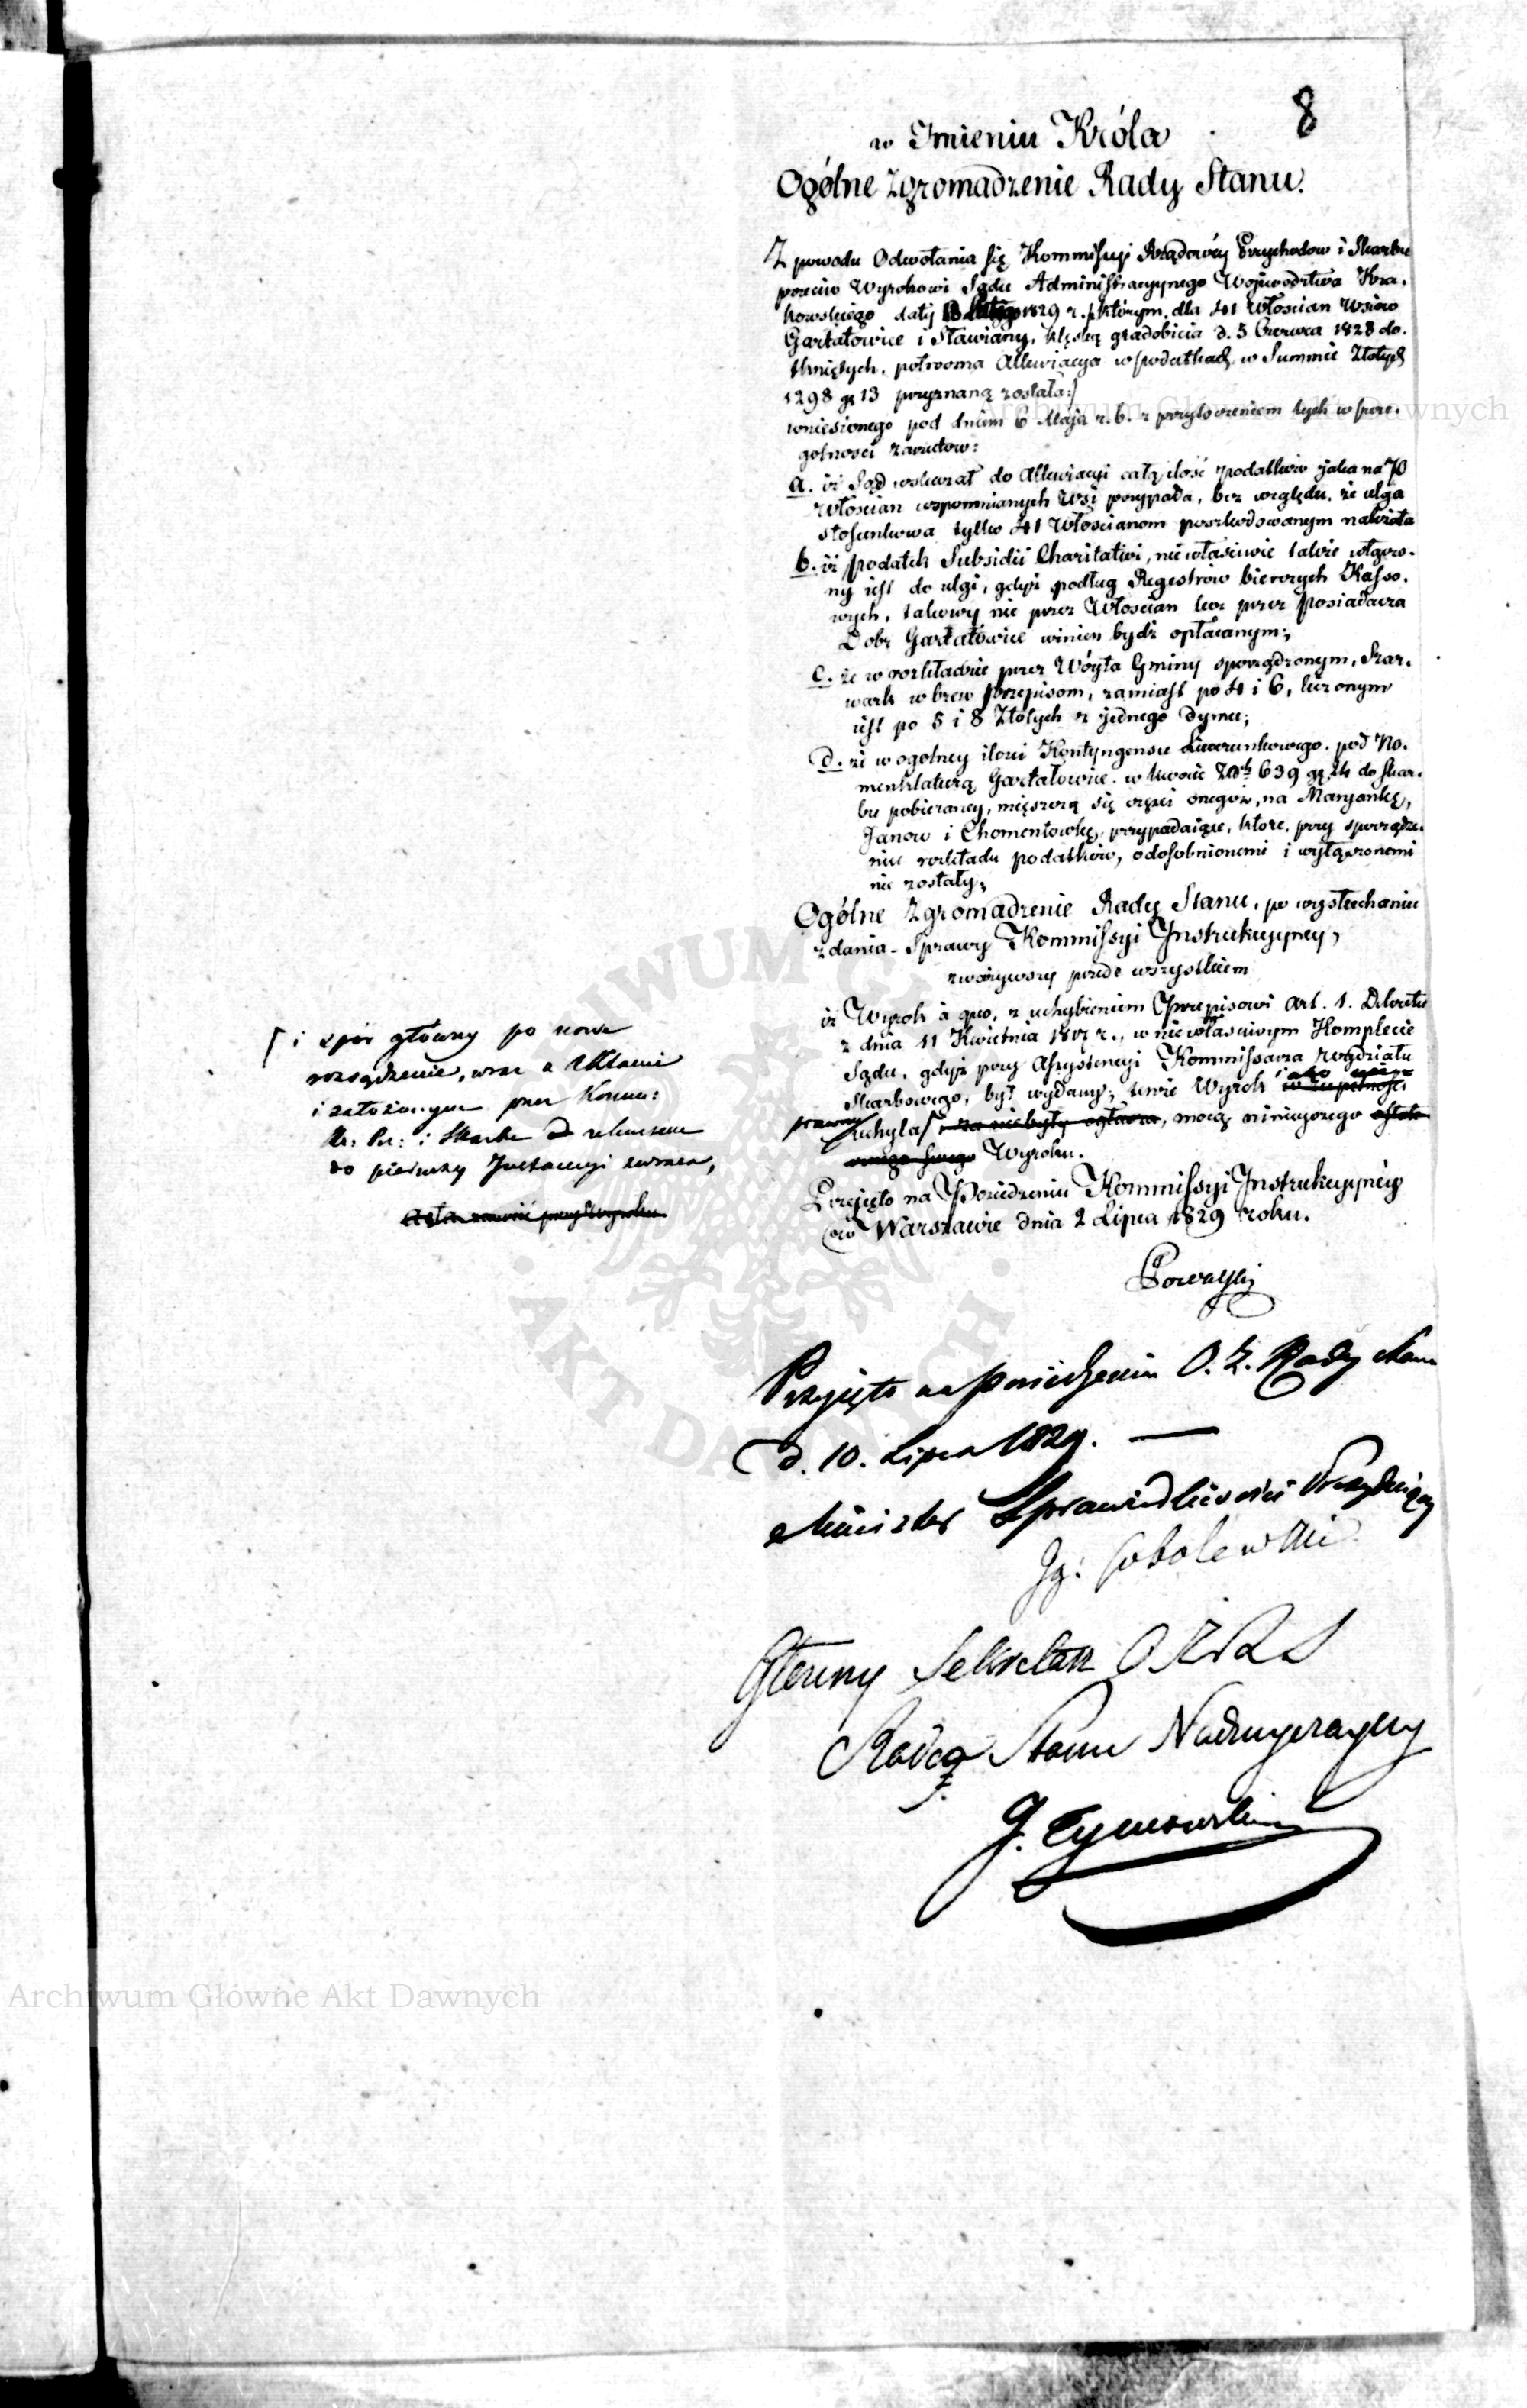 8
w Imieniu Króla
Ogólne Zgromadzenie Rady Stanu.
Z powodu Odwołania się Kommissyi Rządowéy Przychodow i Skarbu
przeciw Wyrokowi Sądu Administracyynego Województwa Kra-
kowskiego daty 1829 r. którym, dla 41 Włoscian Wsiów
Gartatowice i Stawiany, klęską gradobicia d. 5 Czerwca 1828 do-
tkniętych, potrooma Allewiacya w podatkach w Summie Złotych
1298 gr 13 przyznaną została:/
wniesionego pod dniem 6 Maja r. b. z przytoczeniem tych w szcze-
golnosci zarzutow:
a. iż Sąd wskazał do Allewiacyi całą ilość podatków jaka na 70
Włoscian wspomnianych Wsi przypada, bez względu, że ulga
stosunkowa tylko 41 Włoscianom poszkodowanym należała
b. iż podatek Subsidii Charitativi, niewłaściwie także włączo-
ny iest do ulgi, gdyż podług Regestrów bierczych Kasso-
wych, takowy nie przez Włoscian lecz przez Posiadacza
Dobr Gartatowice winien bydź opłacanym;
c. że w rozkładzie przez Wóyta Gminy sporządzonym, Szar-
wark wbrew przepisom, zamiast po 4 i 6, liczonym
iest po 5 i 8 Złotych z jednego dymu;
d. że w ogolney ilosci Kontyngensu Liwerunkowego, pod No-
menklaturą Gartatowice, w kwocie Złch 639 gr 24 do Skar-
bu pobieraney, mięszczą się części onegoż, na Maryankę,
Janow i Chomentowkę, przypadaiące, ktore, przy sporządze-
niu rozkładu podatków, odosobnionemi i wyłączonemi
nie zostały;
Ogólne Zgromadzenie Rady Stanu, po wysłuchaniu
zdania-Sprawy Kommissyi Instrukcyyney,
zważywszy przede wszystkiem
iż Wyrok à quo, z uchybieniem Przepisowi art. 1. Dekretu
z dnia 11 Kwietnia 18 r., w niewłasciwym Komplecie
Sądu, gdyż przy Assystencyi Kommissarza Wydziału
Skarbowego, był wydany; tenże Wyrok w zupełności
uchyla i za niebyły ogłasza, mocą ninieyszego
Wyroku.
[ i spór główny po nowe
rozsądzenie, wraz z Aktami
i założonym przez Komm:
Rz: Prz: i Skarbu rekursem
do pierwszy Instancyi zwraca,
Przyięto na Posiedzeniu Kommissyi Instrukcyynéy
w Warszawie dnia 2 Lipca 1829 roku.
Przyięto na posiedzeniu O. Z. Rady Stanu
d. 10. Lipca 1829.
Minister Sprawiedliwości Prezyduiący
Ig: Sobolewski
Główny Sekretarz O Z R S
Radca Stanu Nadzwyczayny
J. Tymowski
Archiwum Główne Akt Dawnych